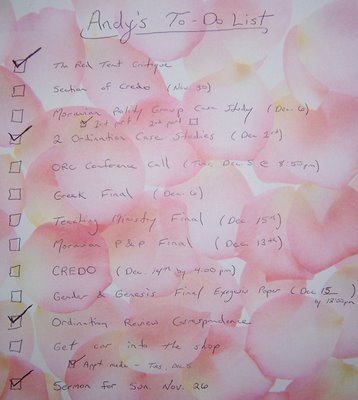 Andy's To-Do List
The Red Tent Critique
Section of Credo (Nov. 30)
Moravian Polity Group Case Study (Dec. 6)
1st part 2nd part
2 Ordination Case Studies (Dec 1st)
ORC Conference Call (Tues. Dec. 5 @ 8:50pm)
Greek Final (Dec. 6)
Teaching Ministry Final (Dec. 15th)
Moravian P&P Final (Dec. 13th)
CREDO (Dec. 14th by 4:00 pm)
Gender & Genesis Final Exegesis Paper (Dec. 15)
by 12:00pm
Ordination Review Correspondence
Get car into the shop
Appt made - Tues. Dec. 5
Sermon for Sun. Nov. 26